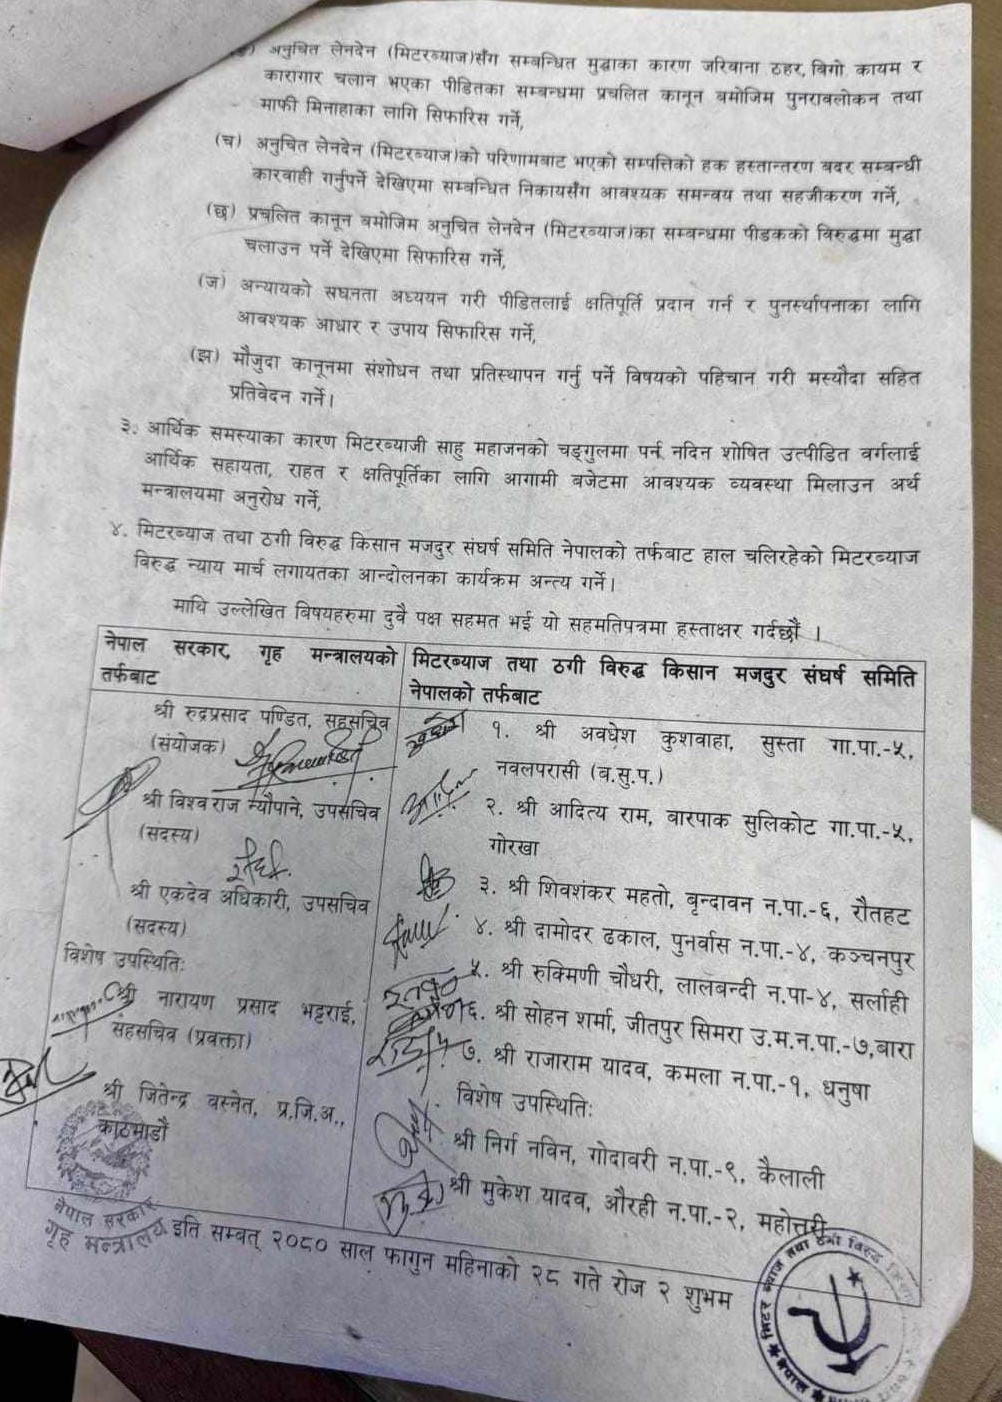 ) अनुचित लेनदेन (मिटरब्याज)सँग सम्बन्धित मुद्दाका कारण जरिवाना ठहर, बिगो कायम र
कारागार चलान भएका पीडितका सम्बन्धमा प्रचलित कानून बमोजिम पुनरावलोकन तथा
माफी मिनाहाका लागि सिफारिस गर्ने,
(च) अनुचित लेनदेन (मिटरब्याज)को परिणामबाट भएको सम्पत्तिको हक हस्तान्तरण बदर सम्बन्धी
कारवाही गर्नुपर्ने देखिएमा सम्बन्धित निकायसँग आवश्यक समन्वय तथा सहजीकरण गर्ने,
(छ) प्रचलित कानून बमोजिम अनुचित लेनदेन (मिटरब्याज)का सम्बन्धमा पीडकको विरुद्धमा मुद्धा
चलाउन पर्ने देखिएमा सिफारिस गर्ने,
(ज) अन्यायको सघनता अध्ययन गरी पीडितलाई क्षतिपूर्ति प्रदान गर्न र पुनर्स्थापनाका लागि
आवश्यक आधार र उपाय सिफारिस गर्ने,
(झ) मौजुदा कानूनमा संशोधन तथा प्रतिस्थापन गर्नु पर्ने विषयको पहिचान गरी मस्यौदा सहित
प्रतिवेदन गर्ने।
३. आर्थिक समस्याका कारण मिटरब्याजी साहु महाजनको चङ्गुलमा पर्न नदिन शोषित उत्पीडित वर्गलाई
आर्थिक सहायता, राहत र क्षतिपूर्तिका लागि आगामी बजेटमा आवश्यक व्यवस्था मिलाउन अर्थ
मन्त्रालयमा अनुरोध गर्ने,
४. मिटरब्याज तथा ठगी विरुद्ध किसान मजदुर संघर्ष समिति नेपालको तर्फबाट हाल चलिरहेको मिटरब्याज
विरुद्ध न्याय मार्च लगायतका आन्दोलनका कार्यक्रम अन्त्य गर्ने।
माथि उल्लेखित बिषयहरुमा दुवै पक्ष सहमत भई यो सहमतिपत्रमा हस्ताक्षर गर्दछौं ।
नेपाल सरकार, गृह मन्त्रालयको
तर्फबाट
श्री रुद्रप्रसाद पण्डित, सहसचिव
(संयोजक)
श्री विश्वराज न्यौपाने, उपसचिव
(सदस्य)
श्री एकदेव अधिकारी, उपसचिव
(सदस्य)
विशेष उपस्थितिः
श्री नारायण प्रसाद भट्टराई,
सहसचिव (प्रवक्ता)
श्री जितेन्द्र बस्नेत, प्र.जि.अ.,
काठमाडौं
मिटरब्याज तथा ठगी विरुद्ध किसान मजदुर संघर्ष समिति
नेपालको तर्फबाट
१. श्री अवधेश कुशवाहा, सुस्ता गा.पा.-५,
नवलपरासी (ब.सु.प.)
२. श्री आदित्य राम, बारपाक सुलिकोट गा.पा.-५,
गोरखा
३. श्री शिवशंकर महतो, बृन्दावन न.पा.-६, रौतहट
४. श्री दामोदर ढकाल, पुनर्वास न.पा.-४, कञ्चनपुर
५. श्री रुक्मिणी चौधरी, लालबन्दी न.पा-४, सर्लाही
६. श्री सोहन शर्मा, जीतपुर सिमरा उ.म.न.पा.-७,बारा
७. श्री राजाराम यादव, कमला न.पा.-१, धनुषा
विशेष उपस्थितिः
श्री निर्ग नविन, गोदावरी न.पा.-९, कैलाली
श्री मुकेश यादव, औरही न.पा.-२, महोत्तरी
नेपाल सरकार
गृह मन्त्रालय
इति सम्बत् २०८० साल फागुन महिनाको २८ गते रोज २ शुभम
मिटर ब्याज तथा ठगी विरुद्ध
नेपाल